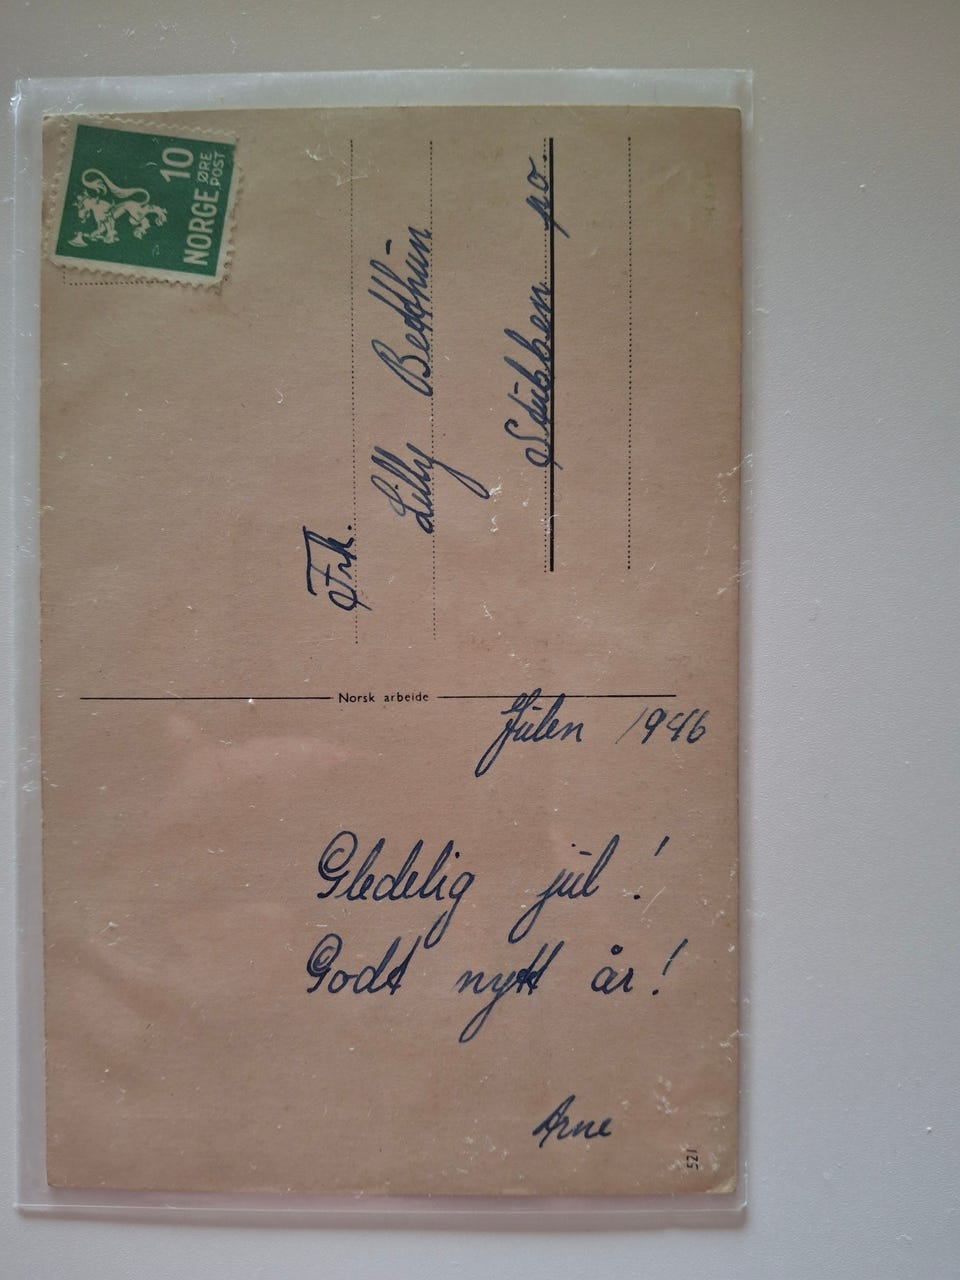 NORGE 10 ØRE POST
Frk.
Lilly Betthun
Stubben po.
Norsk arbeide
Julen 1946
Gledelig jul!
Godt nytt år!
Arne
521